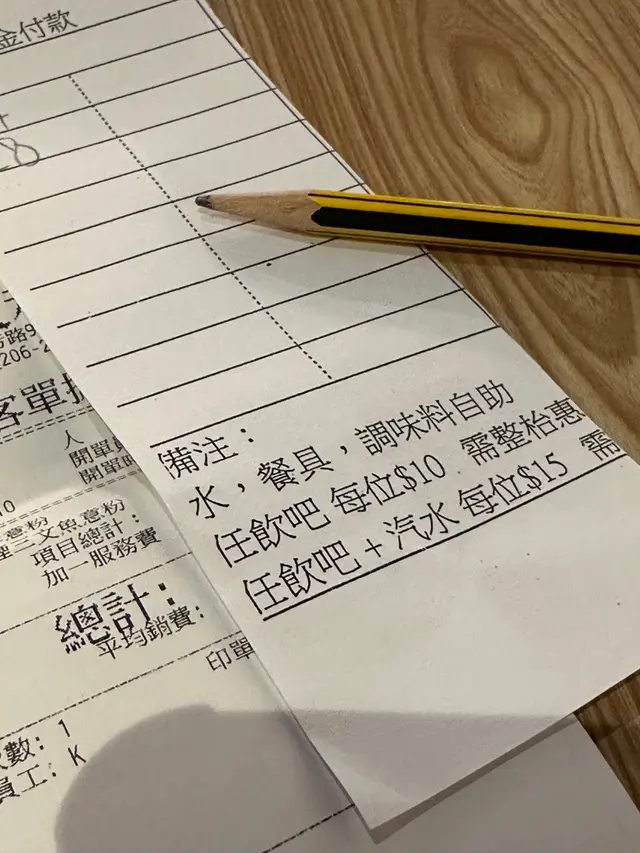 金付款
28
備注：
水，餐具，調味料自助
任飲吧 每位$10 需整枱惠
任飲吧 + 汽水 每位$15 需
206-2
客單
人
開單
開單
意粉
三文魚意粉
項目總計：
加一服務費
總計：
平均銷費：
印單
數: 1
員工: K